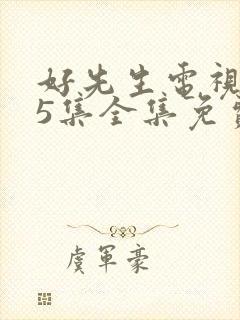 好先生電視
5集全集免費
虞軍豪